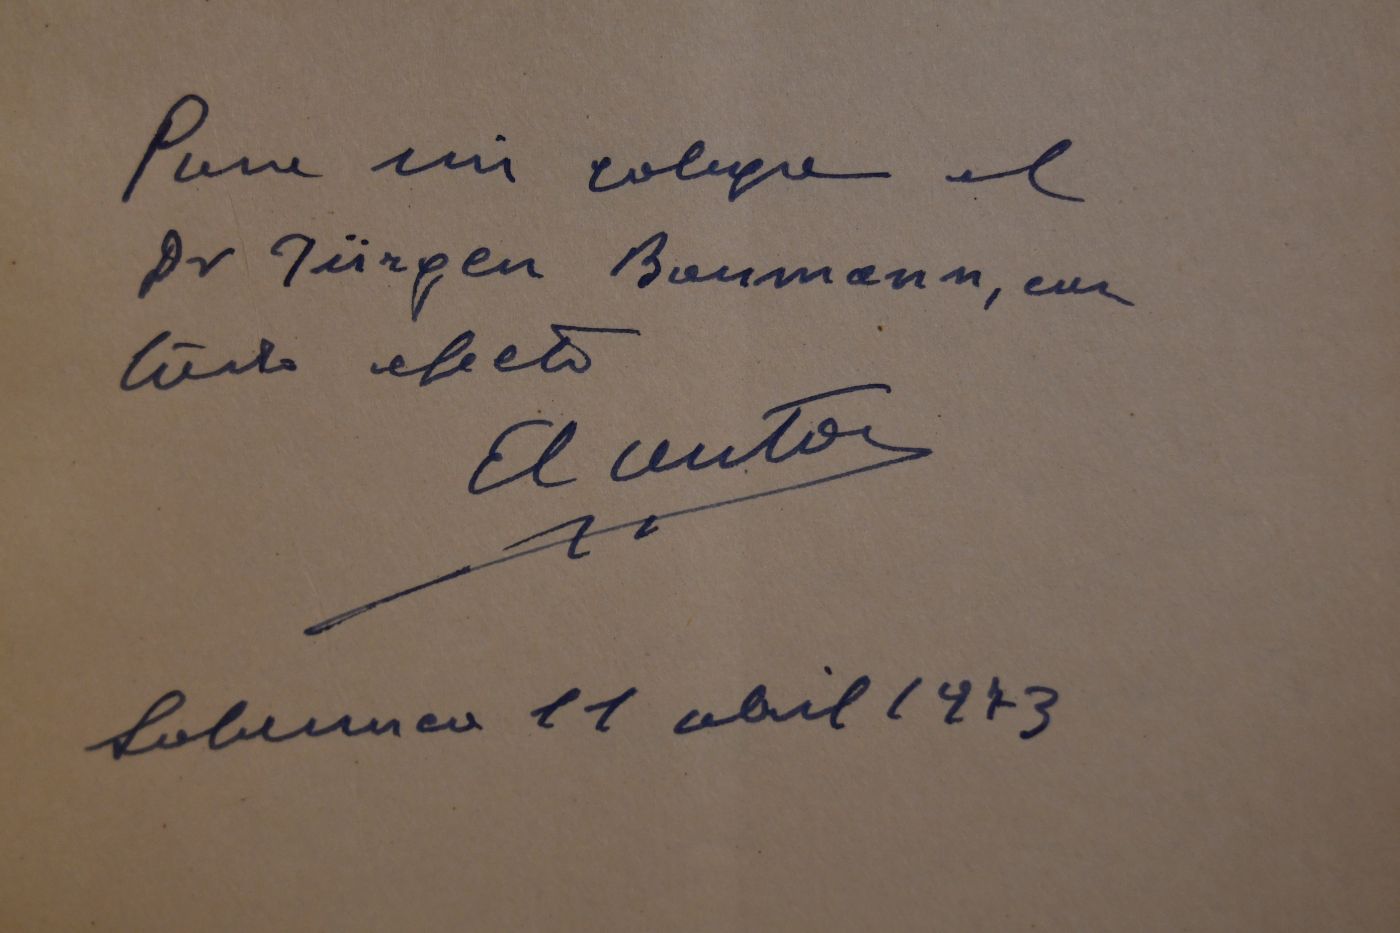 Para mi colega el
Dr Jürgen Baumann, con
todo afecto
El autor
Salamanca 11 abril 1973